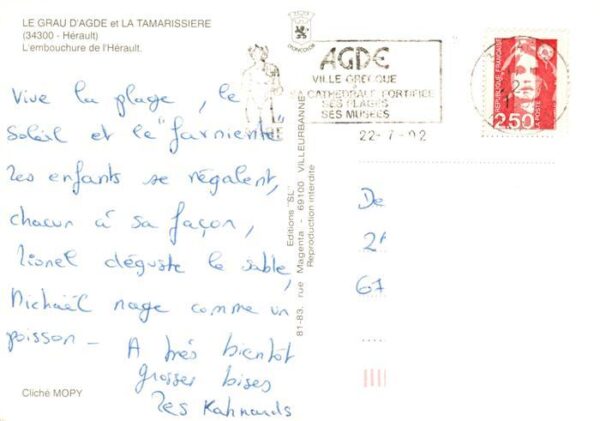 LE GRAU D'AGDE et LA TAMARISSIERE
(34300 - Hérault)
L'embouchure de l'Hérault.
Vive la plage, le
Soleil et le "farniente"
Les enfants se régalent,
chacun à sa façon,
Lionel déguste le sable,
Michaël nage comme un
poisson -
A très bientôt
grosses bises
Les Kahnards
Cliché MOPY
Editions "SL"
81-83, rue Magenta - 69100 VILLEURBANNE
Reproduction interdite
AGDE
VILLE GRECQUE
CATHEDRALE FORTIFIEE
SES PLAGES
SES MUSEES
22-7-92
REPUBLIQUE FRANÇAISE
LA POSTE
2,50
De
67